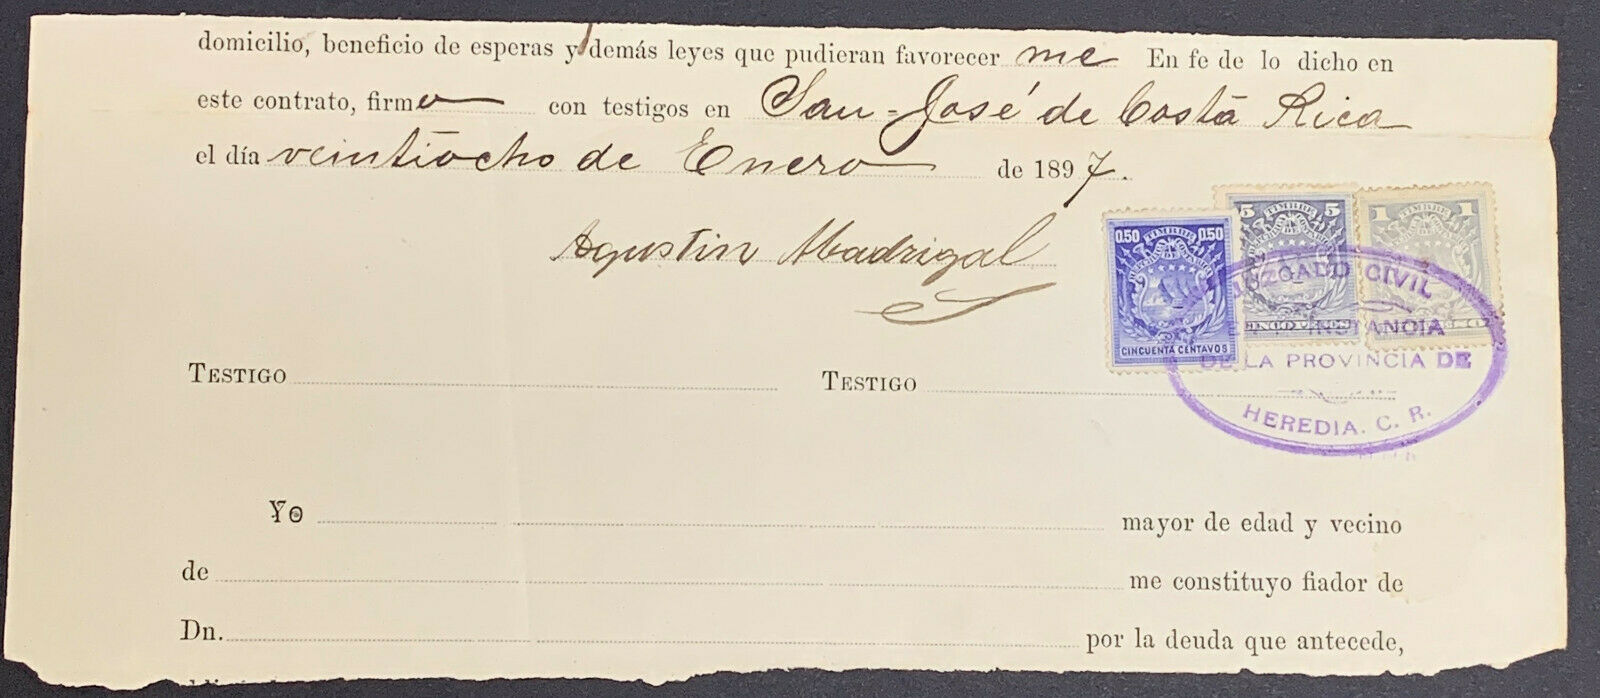 domicilio, beneficio de esperas y demás leyes que pudieran favorecer me En fe de lo dicho en
este contrato, firmo con testigos en San-José de Costa Rica
el día veintiocho de Enero de 1897.
Agustin Madrigal
0.50 TIMBRE 0.50
CINCUENTA CENTAVOS
5 TIMBRE 5
1 TIMBRE 1
JUZGADO CIVIL
INSTANCIA
DE LA PROVINCIA DE
HEREDIA. C. R.
TESTIGO TESTIGO
Yo mayor de edad y vecino
de me constituyo fiador de
Dn. por la deuda que antecede,